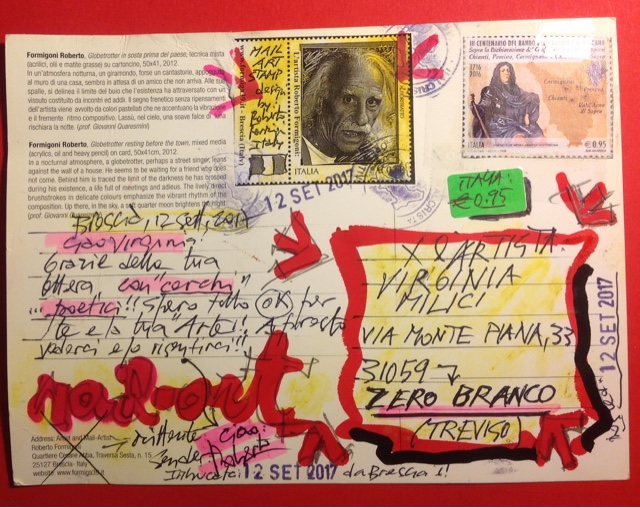 Formigoni Roberto, Globetrotter in sosta prima del paese, tecnica mista
(acrilici, olii e matite grasse) su cartoncino, 50x41, 2012.
In un'atmosfera notturna, un giramondo, forse un cantastorie, appoggiato
al muro di una casa, sembra in attesa di un amico che non arriva. Alle sue
spalle, si delinea il limite del buio che l'esistenza ha attraversato con un
vissuto costituito da incontri ed addii. Il segno frenetico senza ripensamenti
dell'artista viene avvolto da colori pastellati che ne accentuano la vibrazione
e il fremente ritmo compositivo. Lassù, nel cielo, una soave falce di luna
rischiara la notte. (prof. Giovanni Quaresmini)
Formigoni Roberto, Globetrotter resting before the town, mixed media
(acrylics, oil and heavy pencil) on card, 50x41cm, 2012.
In a nocturnal atmosphere, a globetrotter, perhaps a street singer, leans
against the wall of a house. He seems to be waiting for a friend who does
not come. Behind him is traced the limit of the darkness he has brossed
during his existence, a life full of meetings and adieus. The lively, direct
brushstrokes in delicate colours emphasize the vibrant rhythm of the
composition. Up there, in the sky, a quarter moon brightens the night.
(prof. Giovanni Quaresmini)
MAIL
ART
STAMP
design
by
Roberto
Formigoni
Italy
Brescia (Italy)
L'artista Roberto Formigoni
ITALIA
III CENTENARIO DEL BANDO
Sopra la Dichiarazione de'
Chianti, Pomino, Carmignano,
1716
2016
Carmignano
Chianti
Vald'Arno
di Sopra
ITALIA
€ 0,95
12 SET 2017
CRISTA
ITALIA:
€0.95
Brescia, 12 sett, 2017
Ciao Virginia!
Grazie della tua
lettera, con "cerchi"
... poetici!! Spero tutto OK per
te e la tua "Arte".
vederci e/o risentirci!!
mail-art
X l'ARTISTA:
VIRGINIA
MILICI
VIA MONTE PIANA, 33
31059
ZERO BRANCO
(TREVISO)
12 SET 2017
Address: Artist and Mail-Artist
Roberto Formigoni
Quartiere Cesare Abba, Traversa Sesta, n. 15
25127 Brescia - Italy
mittente
Sender
Ciao:
Roberto
12 SET 2017
da Brescia